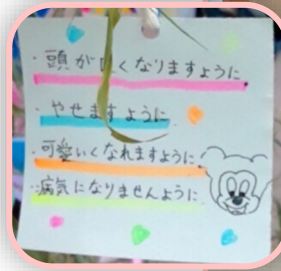 ・頭が良くなりますように
・やせますように
・可愛くなれますように
・病気になりませんように